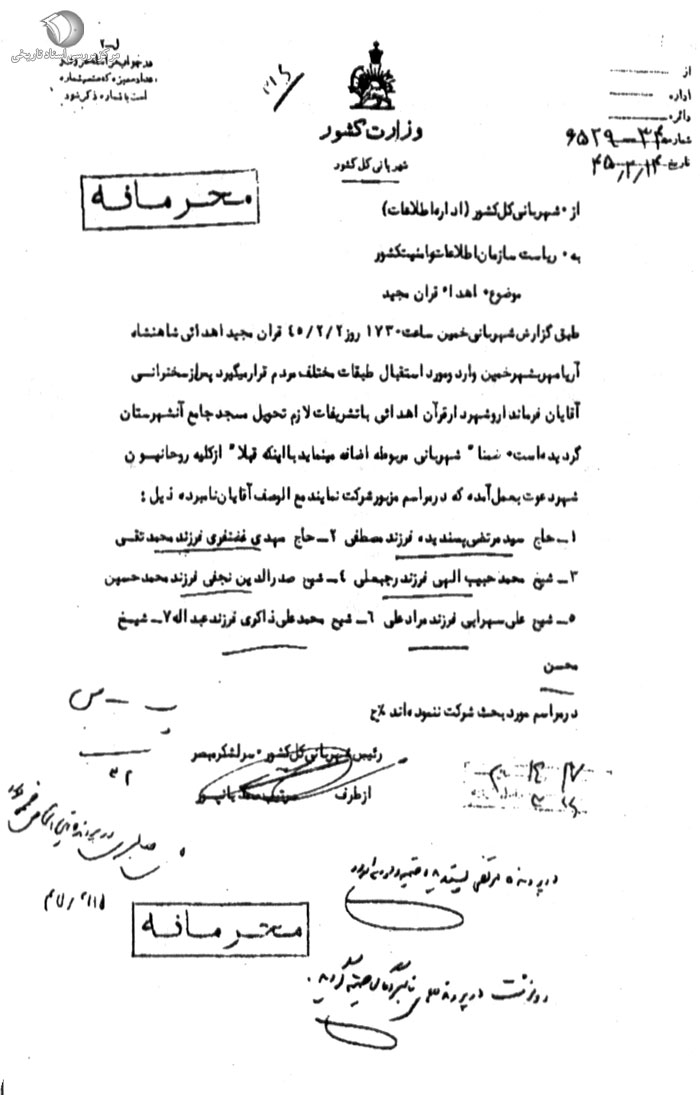 مرکز بررسی اسناد تاریخی
است با شماره ذکر شود
از
اداره
دائره
شماره ۳۴-۶۵۲۹
تاریخ ۴۵/۲/۱۴
وزارت کشور
شهربانی کل کشور
محرمانه
از: شهربانی کل کشور (اداره اطلاعات)
به: ریاست سازمان اطلاعات و امنیت کشور
موضوع: اهداء قران مجید
طبق گزارش شهربانی خمین ساعت ۱۷۳۰ روز ۴۵/۲/۲ قران مجید اهدائی شاهنشاه
آریامهر بشهر خمین وارد و مورد استقبال طبقات مختلف مردم قرار میگیرد پس از سخنرانی
آقایان فرماندار و شهردار قرآن اهدائی با تشریفات لازم تحویل مسجد جامع آنشهرستان
گردیده است. ضمنا" شهربانی مربوطه اضافه مینماید با اینکه قبلا" از کلیه روحانیون
شهر دعوت بعمل آمده که در مراسم مزبور شرکت نمایند مع الوصف آقایان نامبرده ذیل:
۱ـ حاج سید مرتضی پسندیده فرزند مصطفی ۲ـ حاج مهدی غضنفری فرزند محمد تقی
۳ـ شیخ محمد حبیب الهی فرزند رجبعلی ۴ـ شیخ صدرالدین نجفی فرزند محمد حسین
۵ـ شیخ علی سهرابی فرزند مراد علی ۶ـ شیخ محمد علی ذاکری فرزند عبداله ۷ـ شیخ
محسن
در مراسم مورد بحث شرکت ننموده اند %ح
رئیس شهربانی کل کشور. سرلشکر مبصر
از طرف
در پرونده مرتضی پسندیده ضمیمه
محرمانه
در پرونده